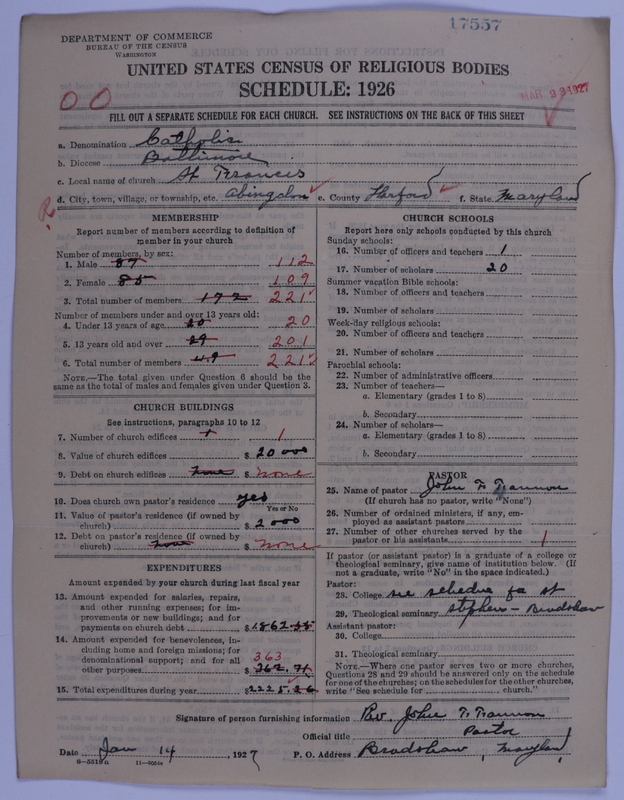 17557
DEPARTMENT OF COMMERCE
BUREAU OF THE CENSUS
WASHINGTON
UNITED STATES CENSUS OF RELIGIOUS BODIES
SCHEDULE: 1926
MAR 23 1927
00
FILL OUT A SEPARATE SCHEDULE FOR EACH CHURCH. SEE INSTRUCTIONS ON THE BACK OF THIS SHEET
a. Denomination Catholic
b. Diocese Baltimore
c. Local name of church St Frances
d. City, town, village, or township, etc. Abingdon e. County Harford f. State Maryland
R
MEMBERSHIP
Report number of members according to definition of
member in your church
Number of members, by sex:
1. Male 87 112
2. Female 85 109
3. Total number of members 172 221
Number of members under and over 13 years old:
4. Under 13 years of age 20 20
5. 13 years old and over 29 201
6. Total number of members 49 221
NOTE.—The total given under Question 6 should be the
same as the total of males and females given under Question 3.
CHURCH BUILDINGS
See instructions, paragraphs 10 to 12
7. Number of church edifices 1 1
8. Value of church edifices $ 20 000
9. Debt on church edifices none $ none
10. Does church own pastor's residence yes
Yes or No
11. Value of pastor's residence (if owned by
church) $ 2 000
12. Debt on pastor's residence (if owned by
church) none $ none
EXPENDITURES
Amount expended by your church during last fiscal year
13. Amount expended for salaries, repairs,
and other running expenses; for im-
provements or new buildings; and for
payments on church debt $ 1862.55
14. Amount expended for benevolences, in-
cluding home and foreign missions; for
denominational support; and for all 363
other purposes $ 362.71
15. Total expenditures during year $ 2225.26
CHURCH SCHOOLS
Report here only schools conducted by this church
Sunday schools:
16. Number of officers and teachers 1
17. Number of scholars 20
Summer vacation Bible schools:
18. Number of officers and teachers
19. Number of scholars
Week-day religious schools:
20. Number of officers and teachers
21. Number of scholars
Parochial schools:
22. Number of administrative officers
23. Number of teachers—
a. Elementary (grades 1 to 8)
b. Secondary
24. Number of scholars—
a. Elementary (grades 1 to 8)
b. Secondary
PASTOR
25. Name of pastor John F.
(If church has no pastor, write "None")
26. Number of ordained ministers, if any, em-
ployed as assistant pastors
27. Number of other churches served by the
pastor or his assistants 1
If pastor (or assistant pastor) is a graduate of a college or
theological seminary, give name of institution below. (If
not a graduate, write "No" in the space indicated.)
Pastor:
28. College see schedue fa st
29. Theological seminary stephen - Bradshaw
Assistant pastor:
30. College
31. Theological seminary
NOTE.—Where one pastor serves two or more churches,
Questions 28 and 29 should be answered only on the schedule
for one of the churches; on the schedules for the other churches,
write "See schedule for church."
Signature of person furnishing information Rev. John F.
Official title Pastor
Date Jan 14, 1927 P. O. Address Bradshaw, Maryland
8—5519a 11—9564a